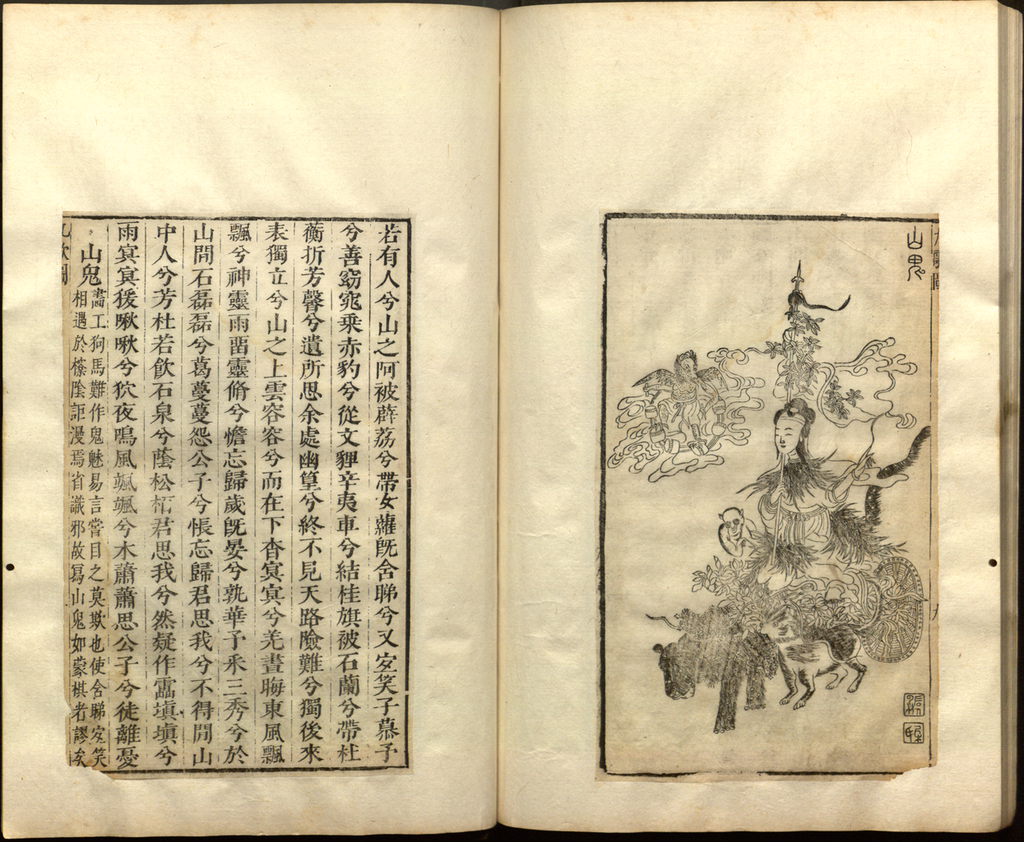 山鬼
若有人兮山之阿被薜荔兮帶女蘿旣含睇兮又宜笑子慕予
兮善窈窕乗赤豹兮從文貍辛夷車兮結桂旗被石蘭兮帶杜
蘅折芳馨兮遺所思余處幽篁兮終不見天路險難兮獨後來
表獨立兮山之上雲容容兮而在下杳冥冥兮羌晝晦東風飄
飄兮神靈雨畱靈脩兮憺忘歸歲旣晏兮孰華予采三秀兮於
山間石磊磊兮葛蔓蔓怨公子兮悵忘歸君思我兮不得閒山
中人兮芳杜若飲石泉兮蔭松栢君思我兮然疑作靁塡塡兮
雨冥冥猨啾啾兮狖夜鳴風颯颯兮木蕭蕭思公子兮徒離憂
山鬼
畫工狗馬難作鬼魅易言嘗目之莫欺也使含睇宜笑
相遇於陰詎漫焉省識邪故冩山鬼如蒙棋者謬矣